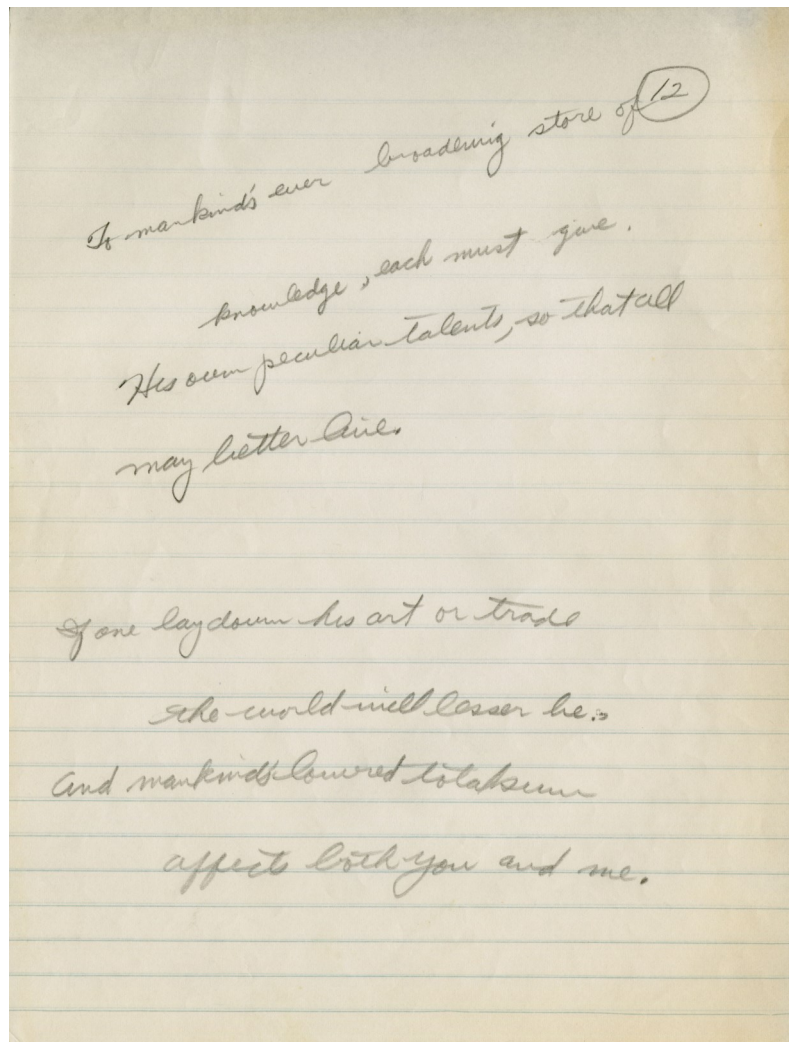 12
To mankind's ever broadening store of
knowledge, each must give.
His own peculiar talents, so that all
may better live.
If one lay down his art or trade
The world will lesser be.
And mankind's lowered total sum
affects both you and me.